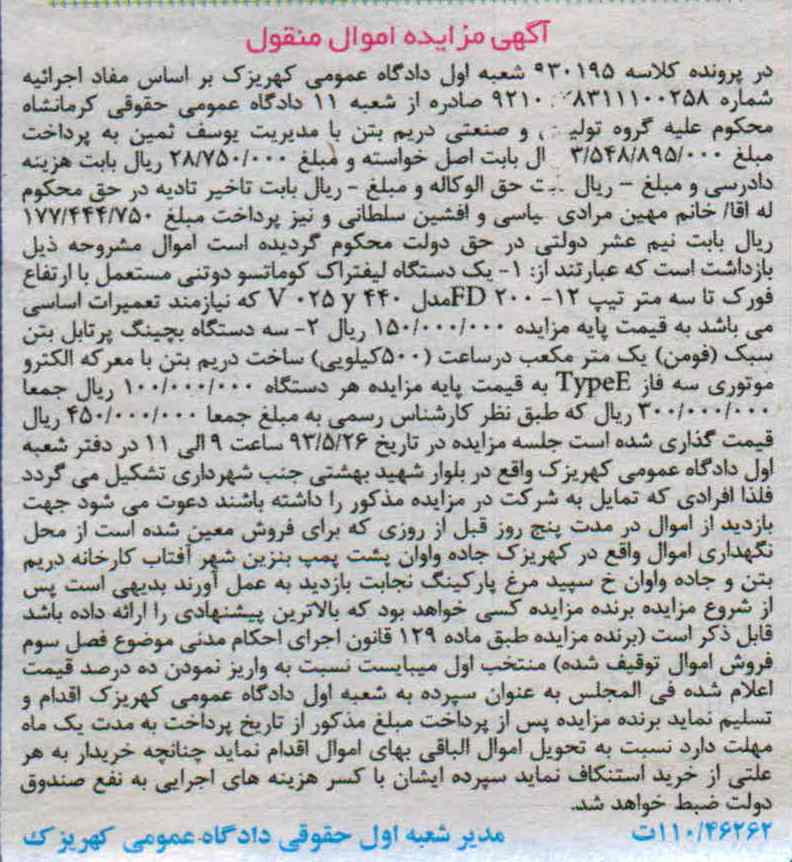 آگهی مزایده اموال منقول
در پرونده کلاسه ۹۳۰۱۹۵ شعبه اول دادگاه عمومی کهریزک بر اساس مفاد اجرائیه
شماره ۹۲۱۰ ۸۳۱۱۱۰۰۲۵۸ صادره از شعبه ۱۱ دادگاه عمومی حقوقی کرمانشاه
محکوم علیه گروه و صنعتی دریم بتن با مدیریت یوسف ثمین به پرداخت
مبلغ ۳/۵۴۸/۸۹۵/۰۰۰ ال بابت اصل خواسته و مبلغ ۲۸/۷۵۰/۰۰۰ ریال بابت هزینه
دادرسی و مبلغ – ریال حق الوکاله و مبلغ - ریال بابت تاخیر تادیه در حق محکوم
له اقا/ خانم مهین مرادی یاسی و افشین سلطانی و نیز پرداخت مبلغ ۱۷۷/۴۴۴/۷۵۰
ریال بابت نیم عشر دولتی در حق دولت محکوم گردیده است اموال مشروحه ذیل
بازداشت است که عبارتند از: ۱- یک دستگاه لیفتراک کوماتسو دوتنی مستعمل با ارتفاع
فورک تا سه متر تیپ ۱۲- ۲۰۰ FDمدل ۴۴۰ V ۰۲۵ y که نیازمند تعمیرات اساسی
می باشد به قیمت پایه مزایده ۱۵۰/۰۰۰/۰۰۰ ریال ۲- سه دستگاه بچینگ پرتابل بتن
سبک (فومن) یک متر مکعب درساعت (۵۰۰کیلویی) ساخت دریم بتن با معرکه الکترو
موتوری سه فاز TypeE به قیمت پایه مزایده هر دستگاه ۱۰۰/۰۰۰/۰۰۰ ریال جمعا
۳۰۰/۰۰۰/۰۰۰ ریال که طبق نظر کارشناس رسمی به مبلغ جمعا ۴۵۰/۰۰۰/۰۰۰ ریال
قیمت گذاری شده است جلسه مزایده در تاریخ ۹۳/۵/۲۶ ساعت ۹ الی ۱۱ در دفتر شعبه
اول دادگاه عمومی کهریزک واقع در بلوار شهید بهشتی جنب شهرداری تشکیل می گردد
فلذا افرادی که تمایل به شرکت در مزایده مذکور را داشته باشند دعوت می شود جهت
بازدید از اموال در مدت پنج روز قبل از روزی که برای فروش معین شده است از محل
نگهداری اموال واقع در کهریزک جاده واوان پشت پمپ بنزین شهر آفتاب کارخانه دریم
بتن و جاده واوان خ سپید مرغ پارکینگ نجابت بازدید به عمل آورند بدیهی است پس
از شروع مزایده برنده مزایده کسی خواهد بود که بالاترین پیشنهادی را ارائه داده باشد
قابل ذکر است (برنده مزایده طبق ماده ۱۲۹ قانون اجرای احکام مدنی موضوع فصل سوم
فروش اموال توقیف شده) منتخب اول میبایست نسبت به واریز نمودن ده درصد قیمت
اعلام شده فی المجلس به عنوان سپرده به شعبه اول دادگاه عمومی کهریزک اقدام و
تسلیم نماید برنده مزایده پس از پرداخت مبلغ مذکور از تاریخ پرداخت به مدت یک ماه
مهلت دارد نسبت به تحویل اموال الباقی بهای اموال اقدام نماید چنانچه خریدار به هر
علتی از خرید استنکاف نماید سپرده ایشان با کسر هزینه های اجرایی به نفع صندوق
دولت ضبط خواهد شد.
۱۱۰/۴۶۲۶۲ت مدیر شعبه اول حقوقی دادگاه عمومی کهریزک